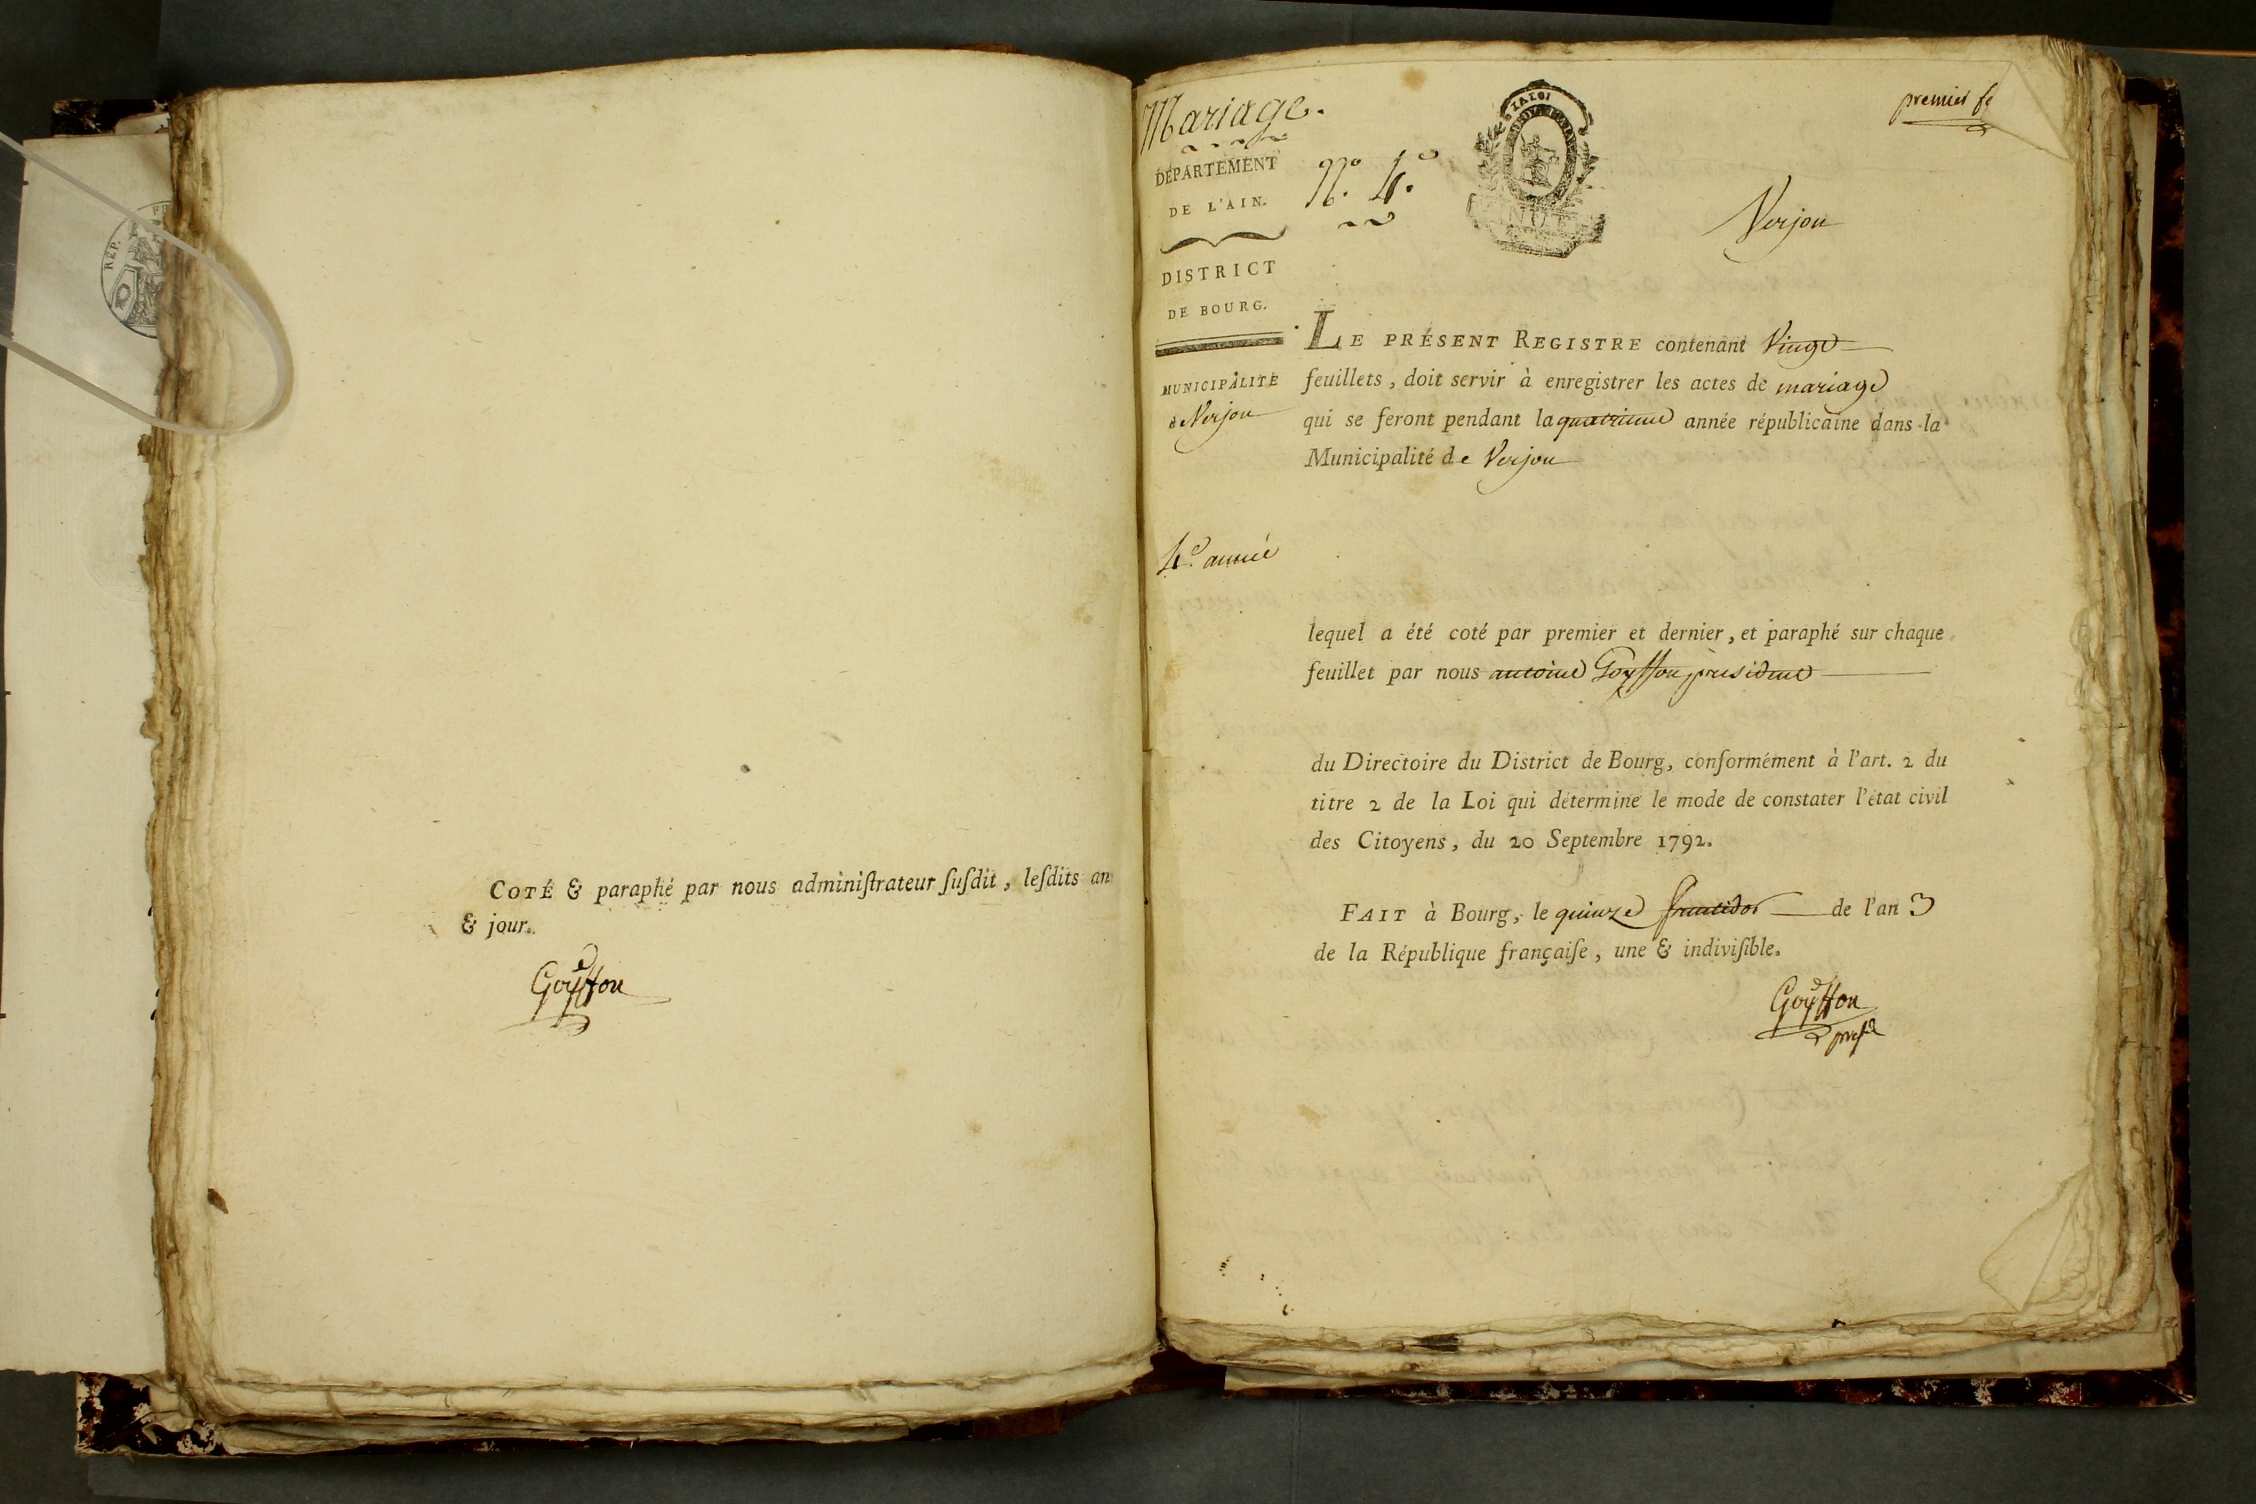 COTÉ & paraphé par nous adminiſtrateur ſuſdit, leſdits an
& jour.
Goyffon
Mariage.
DÉPARTEMENT
DE L'AIN.
N.º 4.º
DISTRICT
DE BOURG.
MUNICIPALITÉ
de Verjon
4.e année
LA LOI
premier f
Verjon
LE PRÉSENT REGISTRE contenant Vingt
feuillets, doit servir à enregistrer les actes de mariage
qui se feront pendant la quatrieme année républicaine dans la
Municipalité de Verjon
lequel a été coté par premier et dernier, et paraphé sur chaque
feuillet par nous antoine Goyffon président
du Directoire du District de Bourg, conformément à l'art. 2 du
titre 2 de la Loi qui détermine le mode de constater l'état civil
des Citoyens, du 20 Septembre 1792.
FAIT à Bourg, le quinze fructidor de l'an 3
de la République françaiſe, une & indiviſible.
Goyffon
presd
REP.